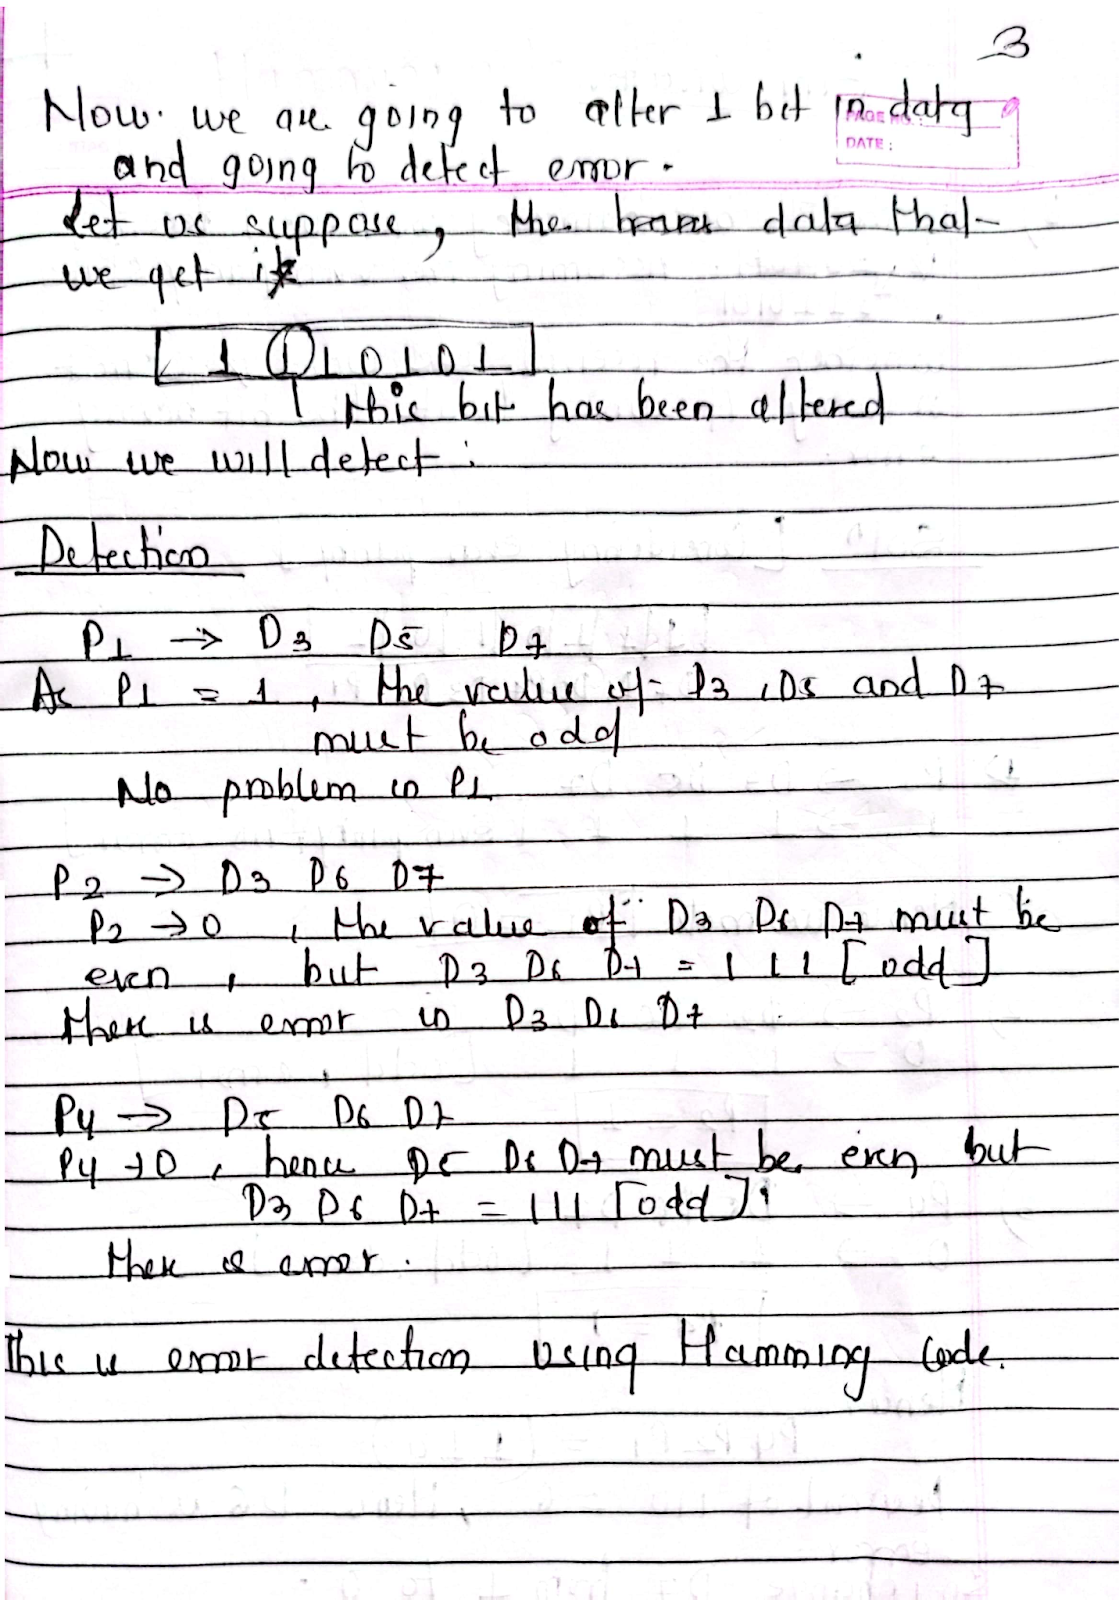 3
Now we are going to alter 1 bit in data
PAGE NO.:
DATE:
and going to detect error.
Let us suppose, the data that
we get is
1 1 1 0 1 0 1
this bit has been altered
Now we will detect:
Detection
P1 → D3 D5 D7
As P1 = 1, the value of D3, D5 and D7
must be odd
No problem in P1
P2 → D3 D6 D7
P2 → 0, the value of D3 D6 D7 must be
even, but D3 D6 D7 = 1 1 1 [odd]
there is error in D3 D6 D7
P4 → D5 D6 D7
P4 → 0, hence D5 D6 D7 must be even but
D3 D6 D7 = 111 [odd]
there is error.
This is error detection using Hamming code.